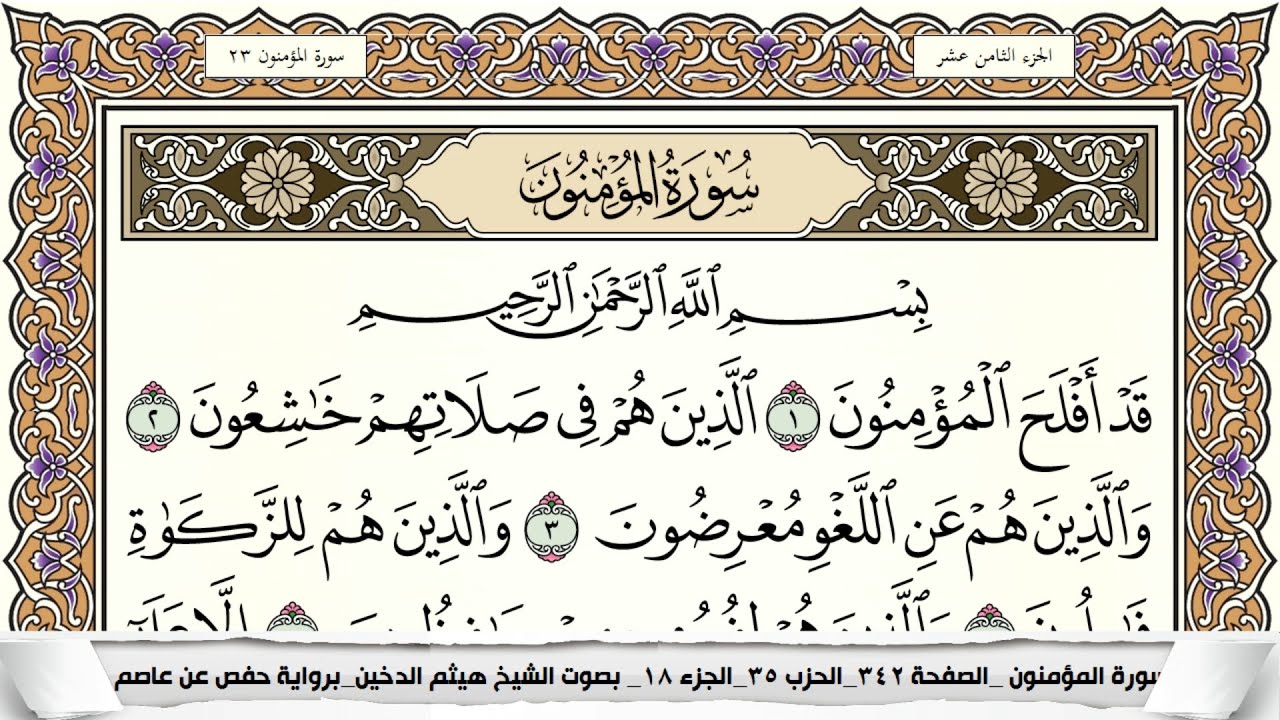 الجزء الثامن عشر
سورة المؤمنون ٢٣
سُورَةُ المُؤْمِنُونَ
بِسْمِ ٱللَّهِ ٱلرَّحْمَٰنِ ٱلرَّحِيمِ
قَدْ أَفْلَحَ ٱلْمُؤْمِنُونَ ١ ٱلَّذِينَ هُمْ فِي صَلَاتِهِمْ خَٰشِعُونَ ٢
وَٱلَّذِينَ هُمْ عَنِ ٱللَّغْوِ مُعْرِضُونَ ٣ وَٱلَّذِينَ هُمْ لِلزَّكَوٰةِ
سورة المؤمنون _الصفحة ٣٤٢_الحزب ٣٥_الجزء ١٨_ بصوت الشيخ هيثم الدخين_برواية حفص عن عاصم